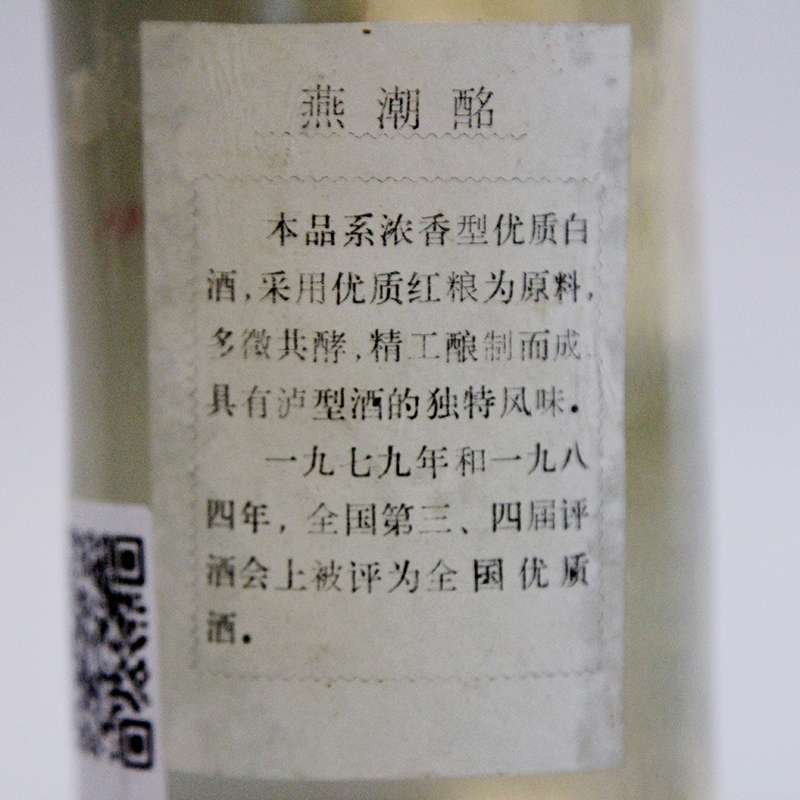 燕潮酩
本品系浓香型优质白
酒,采用优质红粮为原料,
多微共酵,精工酿制而成
具有泸型酒的独特风味.
一九七九年和一九八
四年,全国第三、四届评
酒会上被评为全国优质
酒.